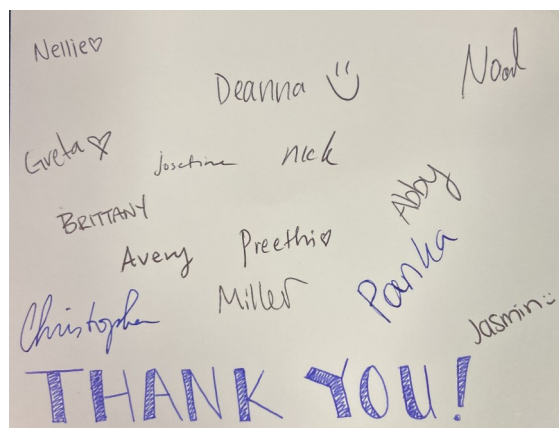 Nellie♡
Deanna
Greta♡
nick
BRITTANY
Abby
Avery
Preethi♡
Christopher
Miller
Jasmin
THANK YOU!